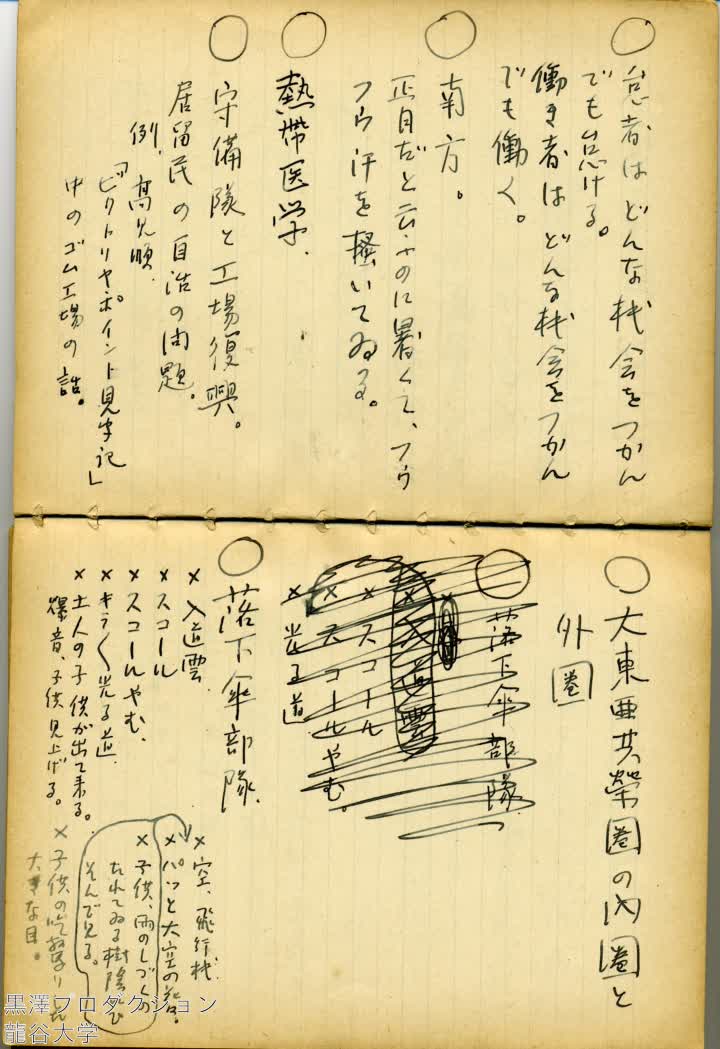 ○怠者はどんな機会をつかん
でも怠ける。
働き者はどんな機会をつかん
でも働く。
○南方。
正月だと云ふのに暑くて、フウ
フウ汗を掻いてゐる。
○熱帯医学、
○守備隊と工場復興。
居留民の自治の問題。
例、高見順
「ビクトリヤポイント見学記」
中のゴム工場の話。
○大東亜共榮圏の内圏と
外圏
○落下傘部隊
×入道雲
×スコール
×スコールやむ。
×光る道
○落下傘部隊、
×入道雲
×スコール
×スコールやむ、
×キラ〱光る道
×土人の子供が出て来る。
爆音、子供見上げる。
×空、飛行機
×パッと大空の落。
×子供、雨のしづくの
たれてゐる樹陰に
そんで見る。
×子供の
大きな目。
黒澤プロダクション
龍谷大学